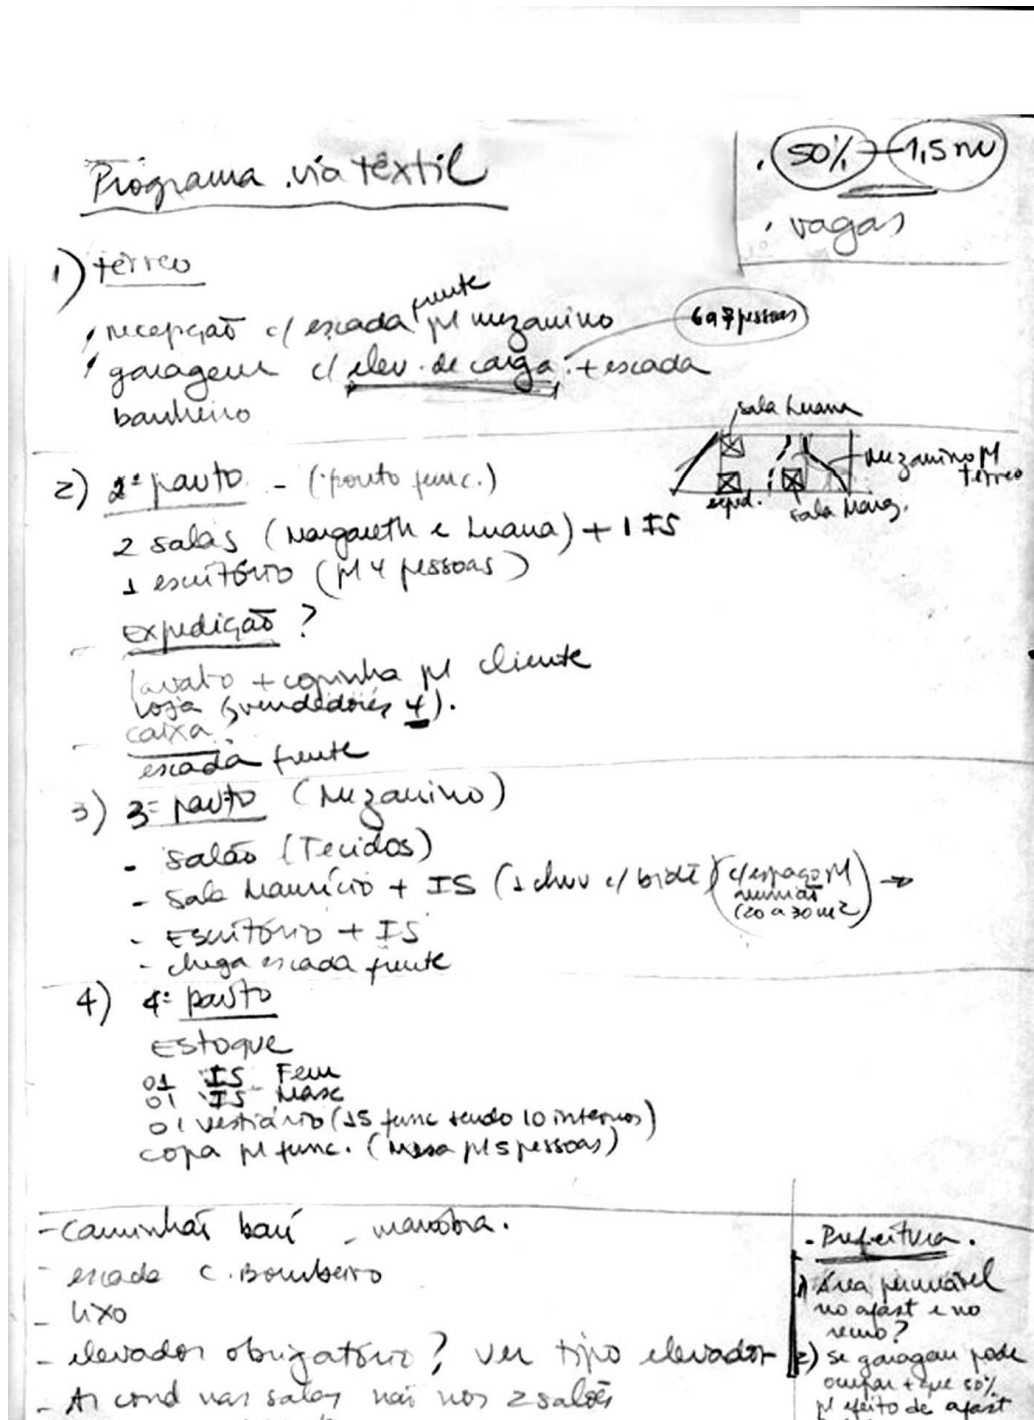 Programa via têxtil
. 50% 1,5 nv
. vagas
1) térreo
recepção c/ escada frente p/ mezanino
6 a 7 pessoas
garagem c/ elev. de carga + escada
banheiro
sala Luana
mezanino p/ térreo
exped.
sala Marg.
2) 2º pavto - (ponto func.)
2 salas (Margareth e Luana) + 1 IS
1 escritório (p/ 4 pessoas)
- Expedição?
lavabo + copinha p/ cliente
Loja (vendedores 4).
- caixa?
escada frente
3) 3º pavto (Mezanino)
- Salão (Tecidos)
- Sala Maurício + IS (1 chuv c/ bidê) (c/ espaço p/
reunião
(20 a 30 m2)
- Escritório + IS
- chega escada frente
4) 4º pavto
Estoque
01 IS Fem
01 IS Masc
01 vestiário (15 func sendo 10 internos)
copa p/ func. (mesa p/ 5 pessoas)
- Caminhão baú - manobra.
- escada C. Bombeiro
- Lixo
- elevador obrigatório? ver tipo elevador
- Ar cond nas salas não nos 2 salões
- Prefeitura.
1) Área permeável
no afast e no
recuo?
2) se garagem pode
ocupar + que 50%
p/ efeito de afast